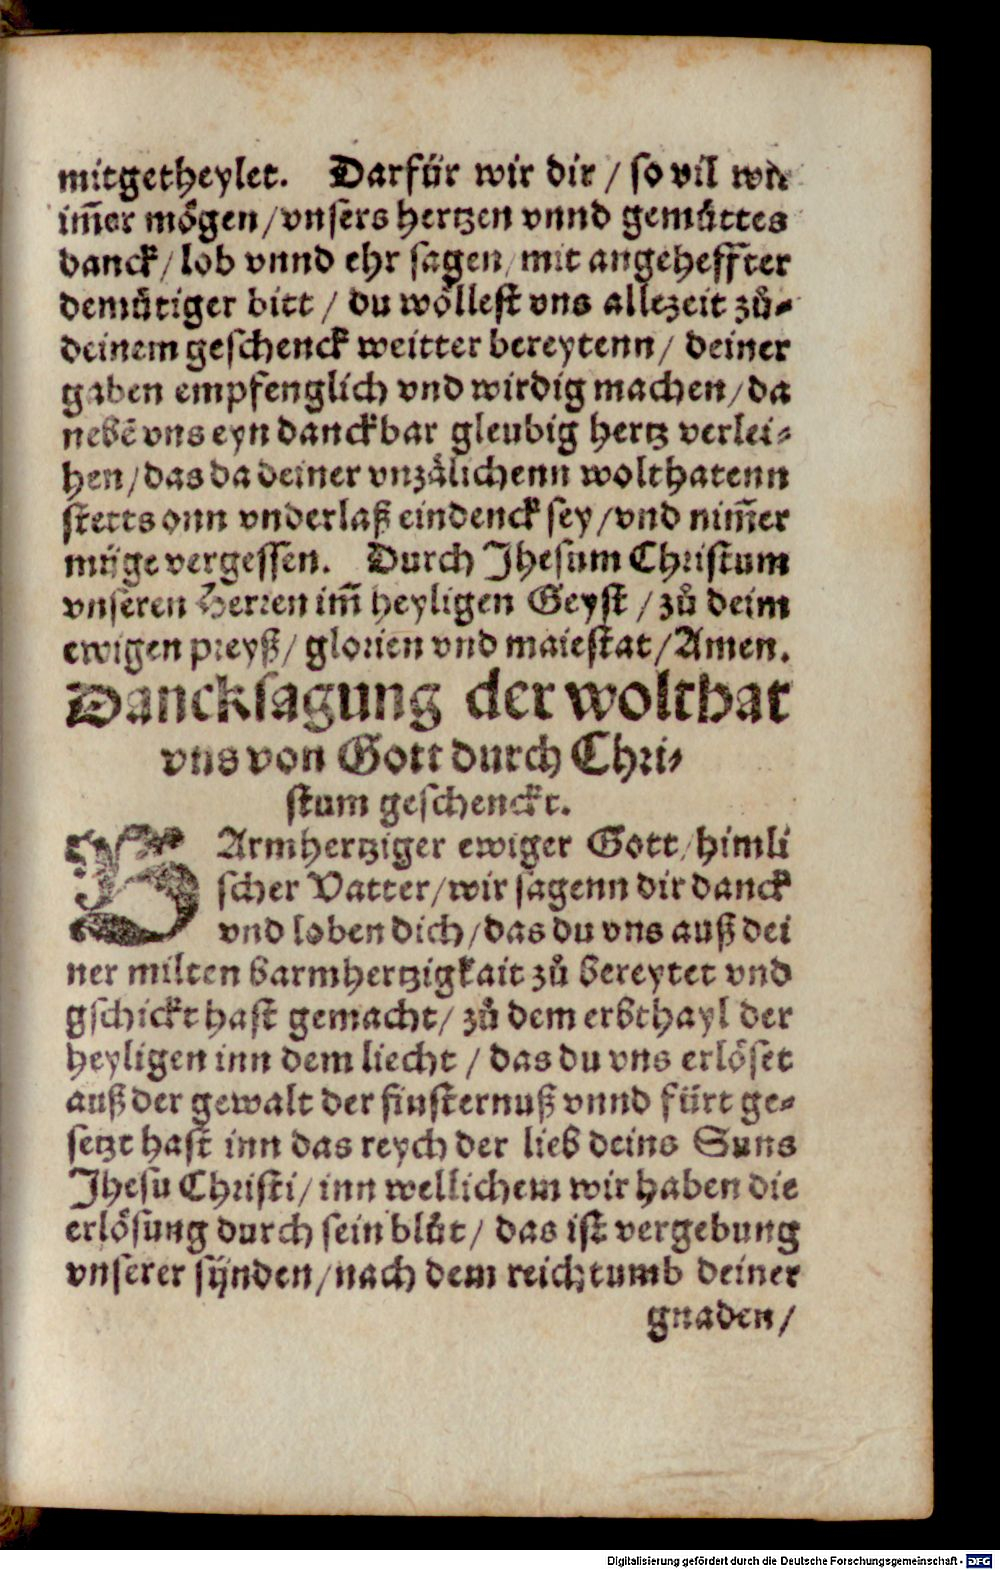 mitgetheylet. Darfür wir dir / so vil wir
im̃er mögen / vnsers hertzen vnnd gemüttes
danck / lob vnnd ehr sagen / mit angeheffter
demütiger bitt / du wöllest vns allezeit zů-
deinem geschenck weitter bereytenn / deiner
gaben empfenglich vnd wirdig machen / da
nebē vns eyn danckbar gleubig hertz verlei-
hen / das da deiner vnzälichenn wolthatenn
stetts onn vnderlaß eindenck sey / vnd nim̃er
müge vergessen. Durch Jhesum Christum
vnseren Herren im̃ heyligen Geyst / zů deim
ewigen preyß / glorien vnd maiestat / Amen.
Dancksagung der wolthat
vns von Gott durch Chri-
stum geschenckt.
BArmhertziger ewiger Gott / himli
scher Vatter / wir sagenn dir danck
vnd loben dich / das du vns auß dei
ner milten barmhertzigkait zů bereytet vnd
gschickt hast gemacht / zů dem erbthayl der
heyligen inn dem liecht / das du vns erlöset
auß der gewalt der finsternuß vnnd fürt ge-
setzt hast inn das reych der lieb deins Suns
Jhesu Christi / inn wellichem wir haben die
erlösung durch sein blůt / das ist vergebung
vnserer sünden / nach dem reichtumb deiner
gnaden /
Digitalisierung gefördert durch die Deutsche Forschungsgemeinschaft - DFG